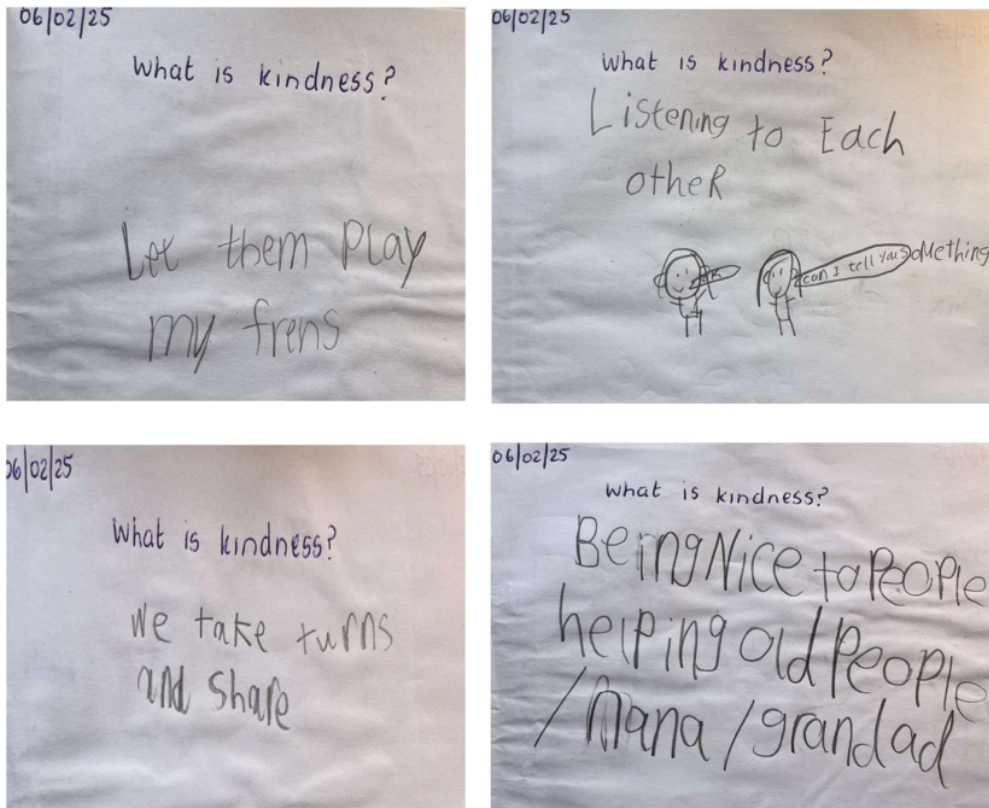 06/02/25
What is kindness?
Let them Play
my frens
06/02/25
What is kindness?
Listening to Each
otheR
can I tell you something
06/02/25
What is kindness?
We take turns
and share
06/02/25
What is kindness?
Being Nice to People
helping old People
/nana/grandad